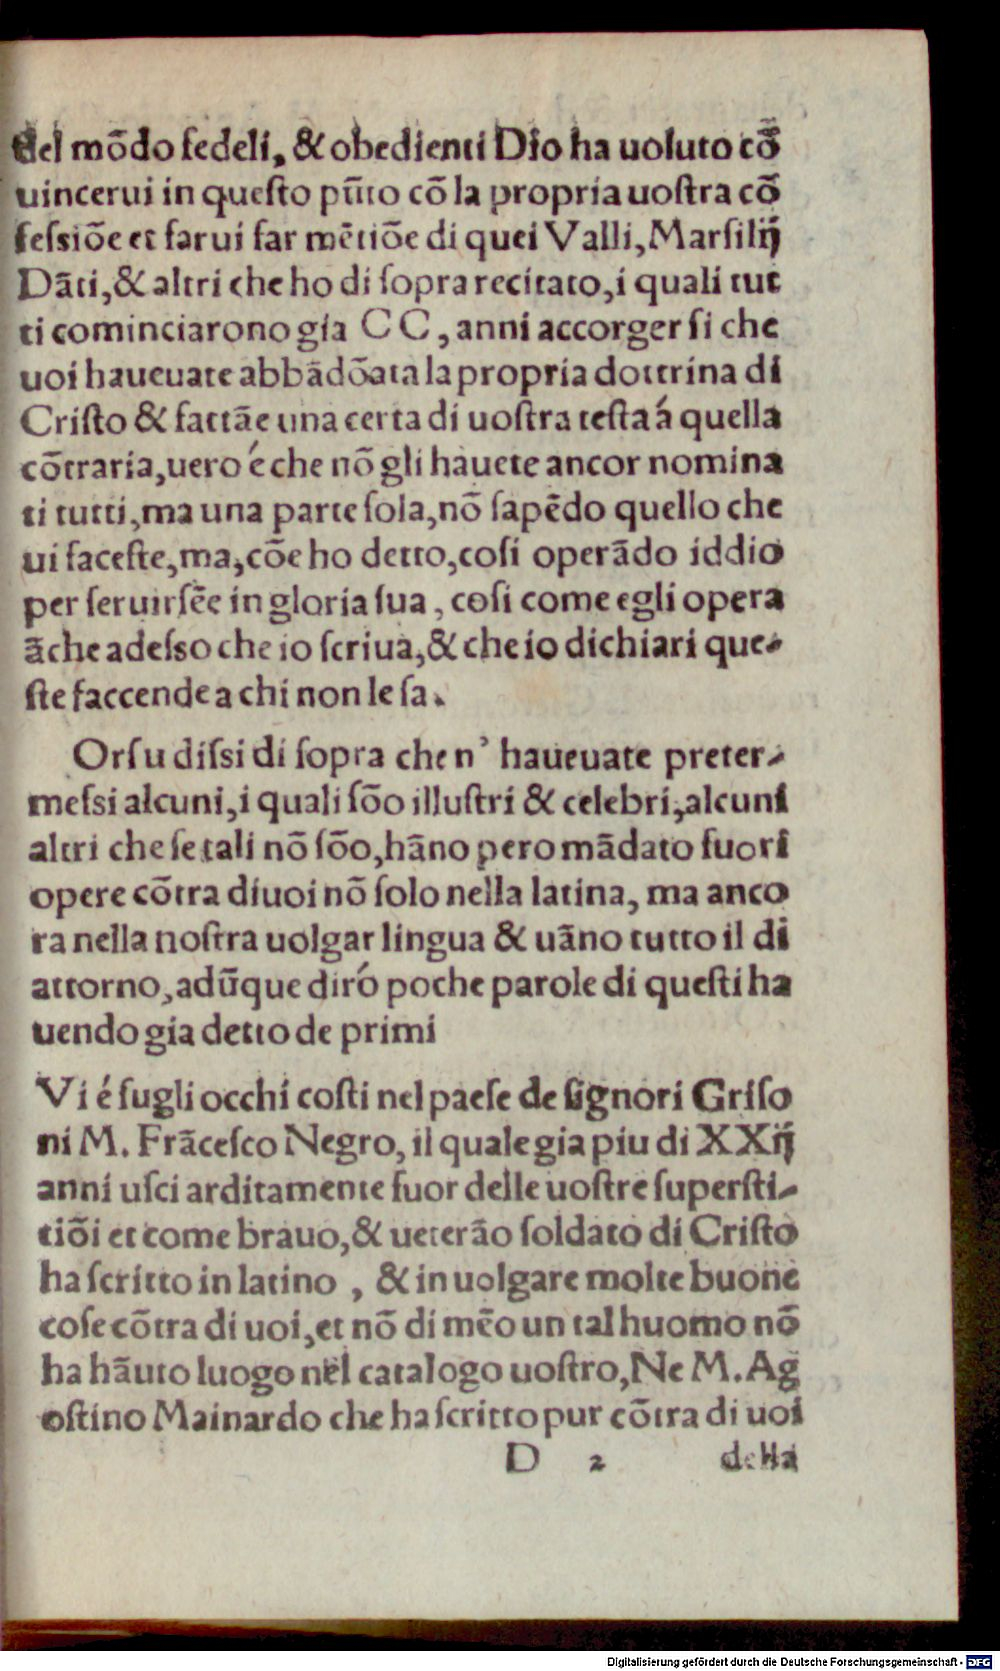 del mōdo fedeli, & obedienti Dio ha uoluto cō
uincerui in queſto pūto cō la propria uoſtra cō
feſſiōe et farui far mētiōe di quei Valli, Marſilij
Dāti, & altri che ho di ſopra recitato, i quali tut
ti cominciarono gía CC, anni accorger ſi che
uoi haueuate abbādōata la propria dottrina di
Criſto & fattāe una certa di uoſtra teſta á quella
cōtraria, uero é che nō gli hauete ancor nomina
ti tutti, ma una parte ſola, nō ſapēdo quello che
ui faceſte, ma, cōe ho detto, coſi operādo iddio
per ſeruirſēe in gloria ſua, coſi come egli opera
āche adeſſo che io ſcriua, & che io dichiari que-
ſte faccende a chi non le ſa.
Orſu diſſi di ſopra che n' haueuate preter-
meſſi alcuni, i quali ſōo illuſtri & celebri, alcuni
altri che ſe tali nō ſōo, hāno pero mādato fuori
opere cōtra di uoi nō ſolo nella latina, ma anco
ra nella noſtra uolgar lingua & uāno tutto il di
attorno, adūque diró poche parole di queſti ha
uendo gia detto de primi
Vi é ſugli occhi coſti nel paeſe de ſignori Griſo
ni M. Frāceſco Negro, il quale gia piu di XXij
anni uſci arditamente fuor delle uoſtre ſuperſti-
tiōi et come brauo, & ueterāo ſoldato di Criſto
ha ſcritto in latino, & in uolgare molte buone
coſe cōtra di uoi, et nō di mēo un tal huomo nō
ha hāuto luogo nel catalogo uoſtro, Ne M. Ag
oſtino Mainardo che ha ſcritto pur cōtra di uoi
D 2 della
Digitalisierung gefördert durch die Deutsche Forschungsgemeinschaft - DFG